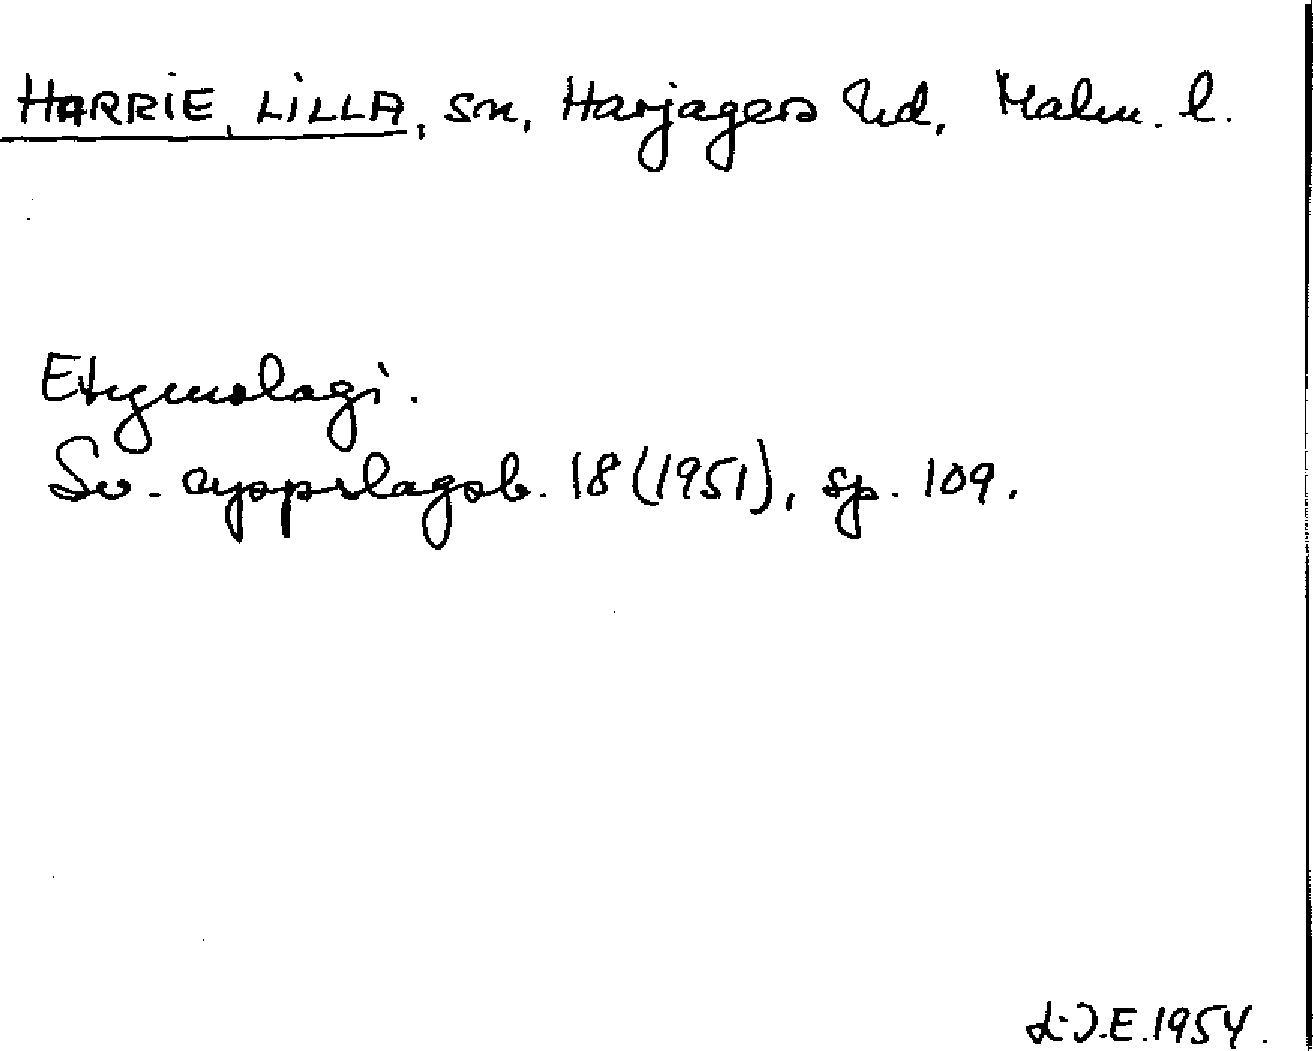 HARRIE, LILLA, sn, Harjagers hd, Malm. l.
Etymologi.
Sv. uppslagsb. 18 (1951), sp. 109.
L.J.E. 1954.